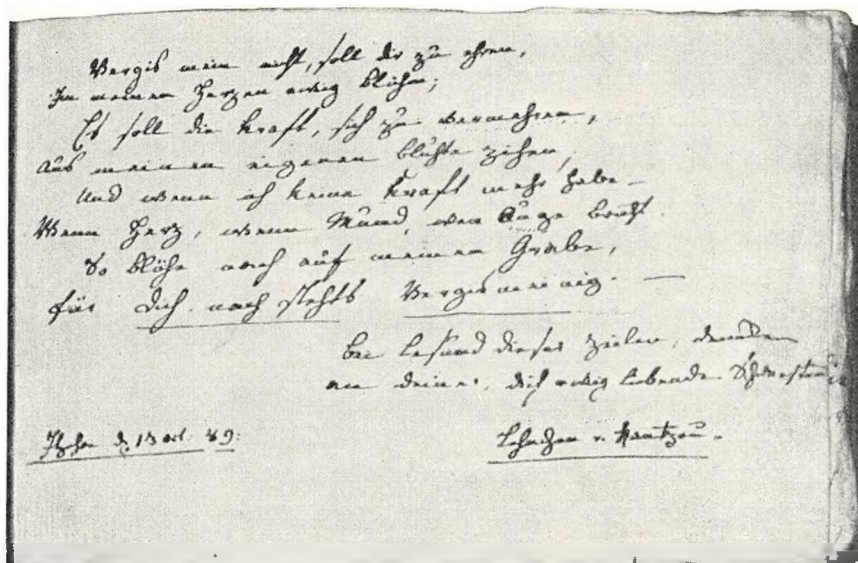 Vergis mein nicht, soll dir zu ehren,
In meinem Herzen ewig blühn;
Es soll die Kraft, sich zu vermehren,
Aus meinen eigenen blühte zihen,
Und wenn ich keine Kraft mehr habe –
Wenn Herz, wenn Mund, wen Auge bricht
So blühe noch auf meinem Grabe,
für Dich noch stehts Vergismeinnig. —
bei Lesung dieser Zeilen,
an deine, dich ewig liebende
Itzehoe d 13 oct. 89:
v. Rantzau.